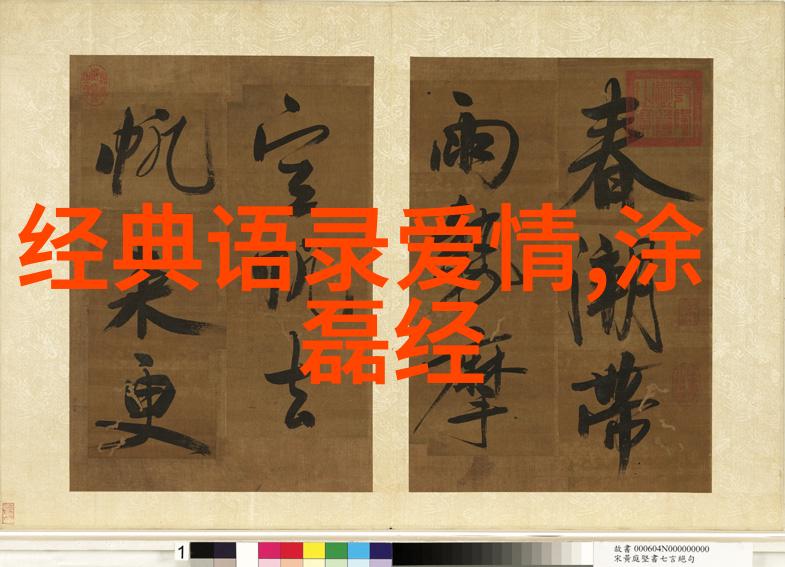 经典语录爱情,涂
磊经
春潮帶
雨 摩
空 去
帆 更
1
故書 000604N000000000
宋黃庭堅書七言絕句